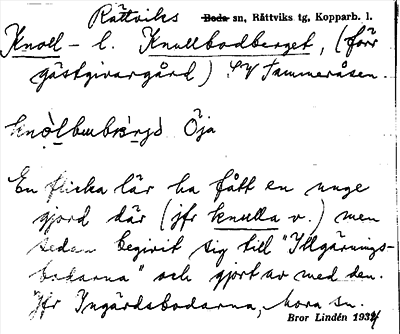 Rättviks Boda sn, Rättviks tg, Kopparb. l.
Knoll- l. Knullbodberget, (förr
gästgivargård) SV Sammeråsen.
Öja
En flicka lär ha fått en unge
gjord där (jfr knulla v.) men
sedan begivit sig till "Illgärnings-
bodarna" och gjort av med den.
Jfr Ingärdsbodarna, Mora sn.
Bror Lindén 1934